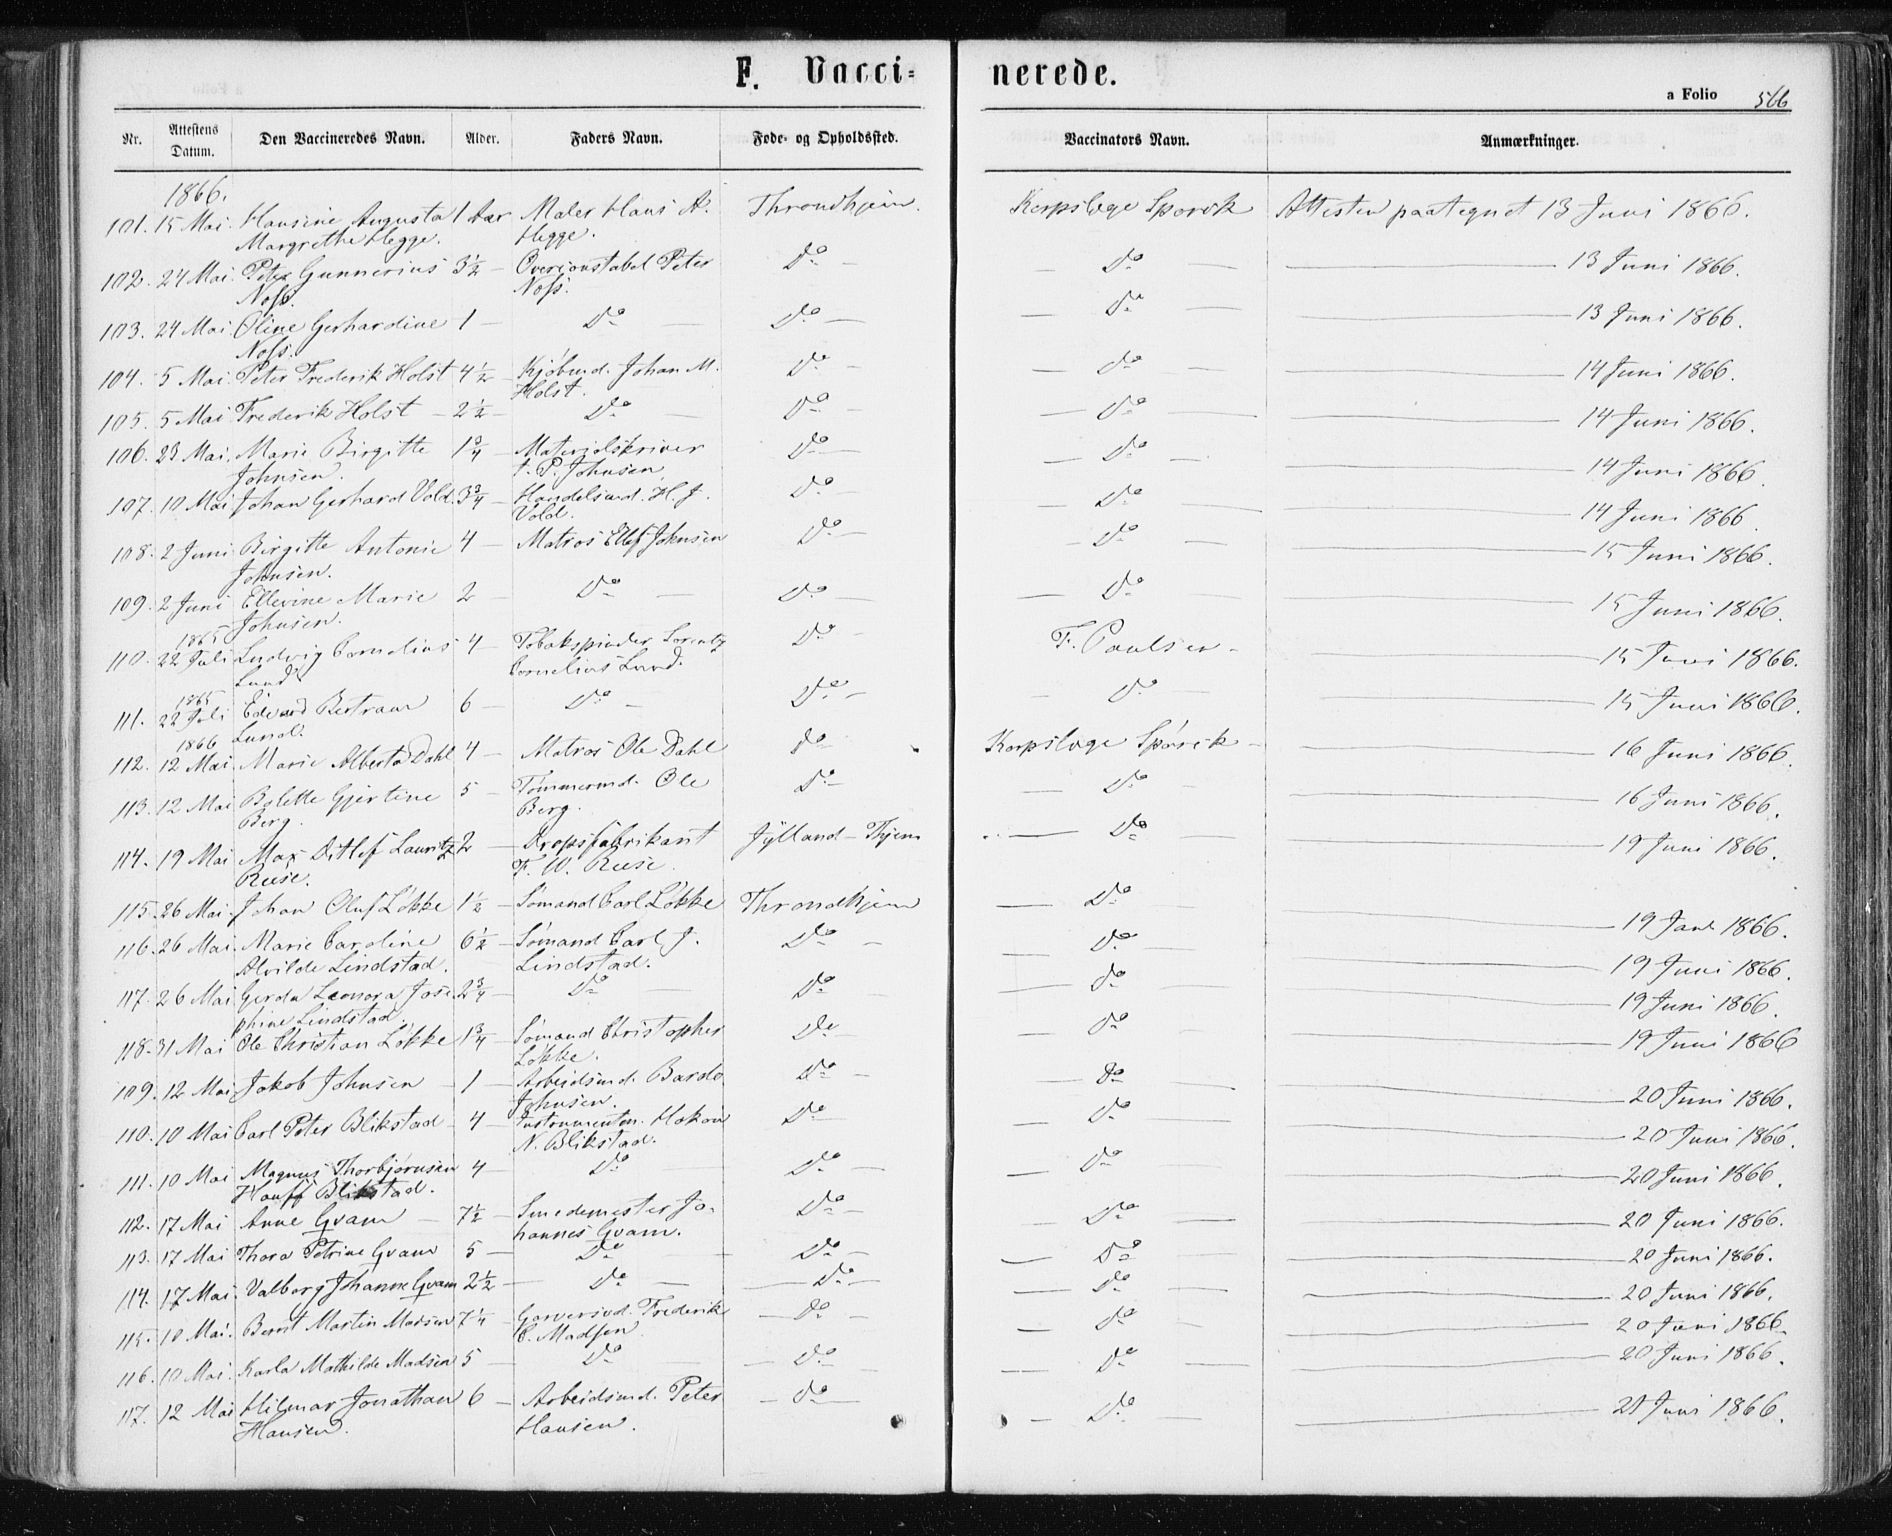 F. Vacci-
nerede.
a Folio 566
Nr. Attestens Datum. Den Vaccineredes Navn. Alder. Faders Navn. Føde- og Opholdssted. Vaccinators Navn. Anmærkninger.
1866.
101. 15 Mai. Hansine Augusta 1 Aar Maler Hans A. Throndhjem. Korpslæge Spørck Attesten paategnet 13 Juni 1866.
Margrethe Hegge. Hegge.
102. 24 Mai. Peter Gunnerius 3½ — Overconstabel Peter Do — — Do — — 13 Juni 1866.
Noss. Noss.
103. 24 Mai Oline Gerhardine 1 — Do — Do — — Do — — 13 Juni 1866.
Noss.
104. 5 Mai. Peter Frederik Holst 4½ Kjøbmd. Johan M. Do — — Do — — 14 Juni 1866.
Holst.
105. 5 Mai Frederik Holst — 2½ — Do Do — — Do — — 14 Juni 1866.
106. 23 Mai. Marie Birgitte 1¾ — Materialskriver Do — — Do — — 14 Juni 1866.
Johnsen. P. Johnsen
107. 10 Mai Johan Gerhard Vold. 3¾ — Handelsmd. H. J. Do — — Do — — 14 Juni 1866
Vold.
108. 2 Juni Birgitte Antonie 4 — Matros Ellef Johnsen Do — — Do — — 15 Juni 1866.
Johnsen.
109. 2 Juni Ellevine Marie 2 — Do — Do — — Do — — 15 Juni 1866.
Johnsen.
1865
110. 22 Juli Ludvig Cornelius 4 — Tobakspinder Lorentz Do — F. Paulsen — — 15 Juni 1866.
Lund Cornelius Lund.
1865
111. 22 Juli Edvard Bertram 6 — Do — Do — — Do — — 15 Juni 1866.
Lund.
1866
112. 12 Mai. Marie Alberta Dahl 4 — Matros Ole Dahl Do — Korpslæge Spørck — — 16 Juni 1866.
113. 12 Mai Bolette Gjertine 5 — Tømmermd. Ole Do — — Do — — 16 Juni 1866.
Berg. Berg.
114. 19 Mai Max Ditlef Lauritz 2 — Dropsfabrikant Jylland — Thjem — Do — — 19 Juni 1866.
Reese. F. W. Reese.
115. 26 Mai. Johan Oluf Løkke 1½ — Sømand Carl Løkke Throndhjem — Do — 19 Juni 1866.
116. 26 Mai. Marie Caroline 6½ — Sømand Carl J. Do — — Do — — 19 Juni 1866.
Alvilde Lindstad. Lindstad.
117. 26 Mai Gerda Leonora Jose- 2¾ — Do — Do — Do — — 19 Juni 1866.
phine Lindstad.
118. 31 Mai Ole Christian Løkke 1¾ — Sømand Christopher Do — Do — — 19 Juni 1866
Løkke.
109. 12 Mai Jakob Johnsen — 1 — Arbeidsmd. Bardo Do — — Do — — 20 Juni 1866.
Johnsen.
110. 10 Mai Carl Peter Blikstad — 4 — Instrumentm. Hakon Do — — Do — — 20 Juni 1866.
N. Blikstad.
111. 10 Mai Magnus Thorbjørnsen 4 — Do — Do — — Do — — 20 Juni 1866.
Hauff Blikstad.
112. 17 Mai Anne Gvam — 7½ — Smedemester Jo- Do — — Do — — 20 Juni 1866.
hannes Gvam.
113. 17 Mai Thora Petrine Gvam 5 — Do — Do — — Do — — 20 Juni 1866.
114. 17 Mai. Valborg Johanne Gvam 2½ — Do — — Do — — Do — — 20 Juni 1866.
115. 10 Mai. Bernt Martin Madsen 7¼ — Garversvd. Frederik — Do — — Do — — 20 Juni 1866.
C. Madsen
116. 10 Mai. Karla Mathilde Madsen 5 — Do — — Do — — Do — — 20 Juni 1866.
117. 12 Mai Hilmar Jonathan 6 — Arbeidsmd. Peter — Do — — Do — — 21 Juni 1866.
Hansen. Hansen.